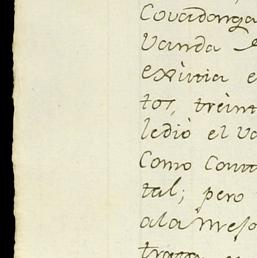 Covadonga
Vanda
eximia e
tos, trein
ledió el Va
Como Conv
tal; pero
ala Mejo